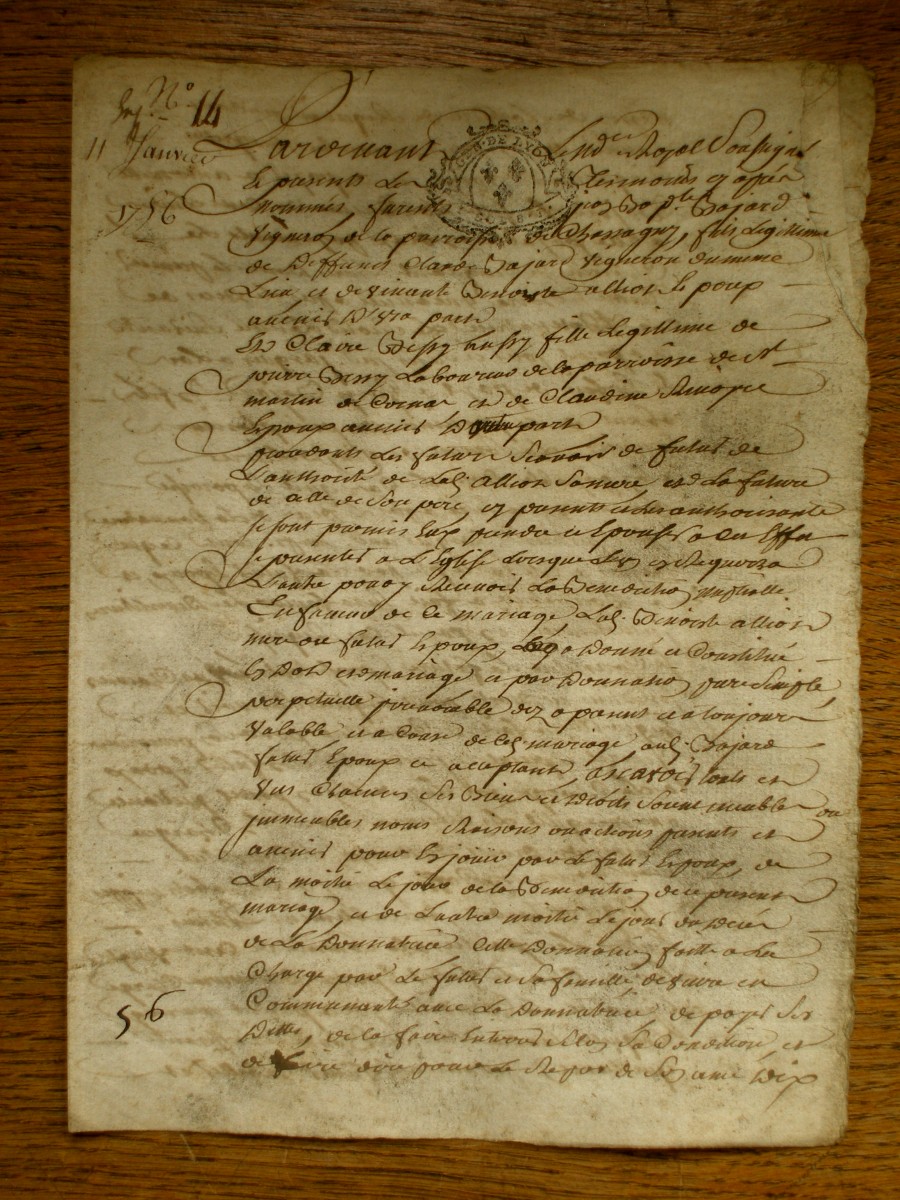 No 14
11 Janvier
1756
Pardevant Le nd.re Royal Soussigné
Et presents Les Tesmoins cy apres
nommés, furents Dajard
vigneron de la parroisse de Chassagny, fils Legittime
de Deffunct Claude Dajard vigneron du meme
Lieu et de vivante Benoiste allion Le poux
avenir D'vne part
Et Claire fille Legittime de
pierre Laboureur de la parroisse de St
martin de Cornas et de Claudine
Epoux avenirs D'autre part
procedants Les futurs Scavoir Le futur de
L'authorité de Lad. allion Sa mere et La future
de celle de Son pere, cy presents et Les authorisants
Se sont promis Eux prendre et Epouser a cet Effet
Se presenter a L'Eglise Lorsque L'un en Requerera
L'autre pour y Recevoir La Benediction nuptialle
En faveur de Ce mariage, Lad. Benoiste allion
mere du futur Epoux, a Donné et Constitué
En Dot et mariage et par Donnation pure Simple
perpetuelle jrrevocable dez a present et a toujours
valable et a Cause de Ced. mariage, aud. Dajard
futur Epoux ce acceptant, a scavoir touts et
vns Chacuns Ses Biens et Droits Soient meubles ou
jmmeubles noms Raisons ou actions presents et
avenirs pour En jouir par Le futur Epoux, de
La moitié Le jour de la Benediction de ce present
mariage, et de L'autre moitié Le jour du Decés
de La Donnatrice Cette Donnation faitte a La
Charge par Le futur et Sa famille, de vivre en
Communauté avec La Donnatrice de payer Ses
Dettes, de la faire Enterrer Selon Sa Condition, et
de faire dire pour Le Repos de Son ame Dix
56